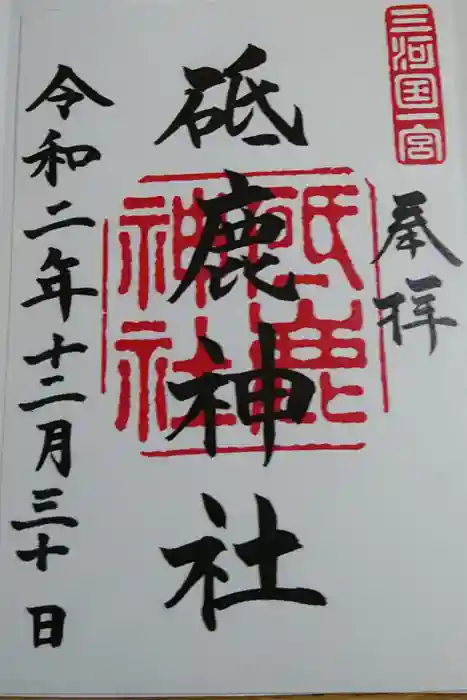 三河国一宮
奉拝
砥鹿神社
砥鹿
神社
令和二年十二月三十日